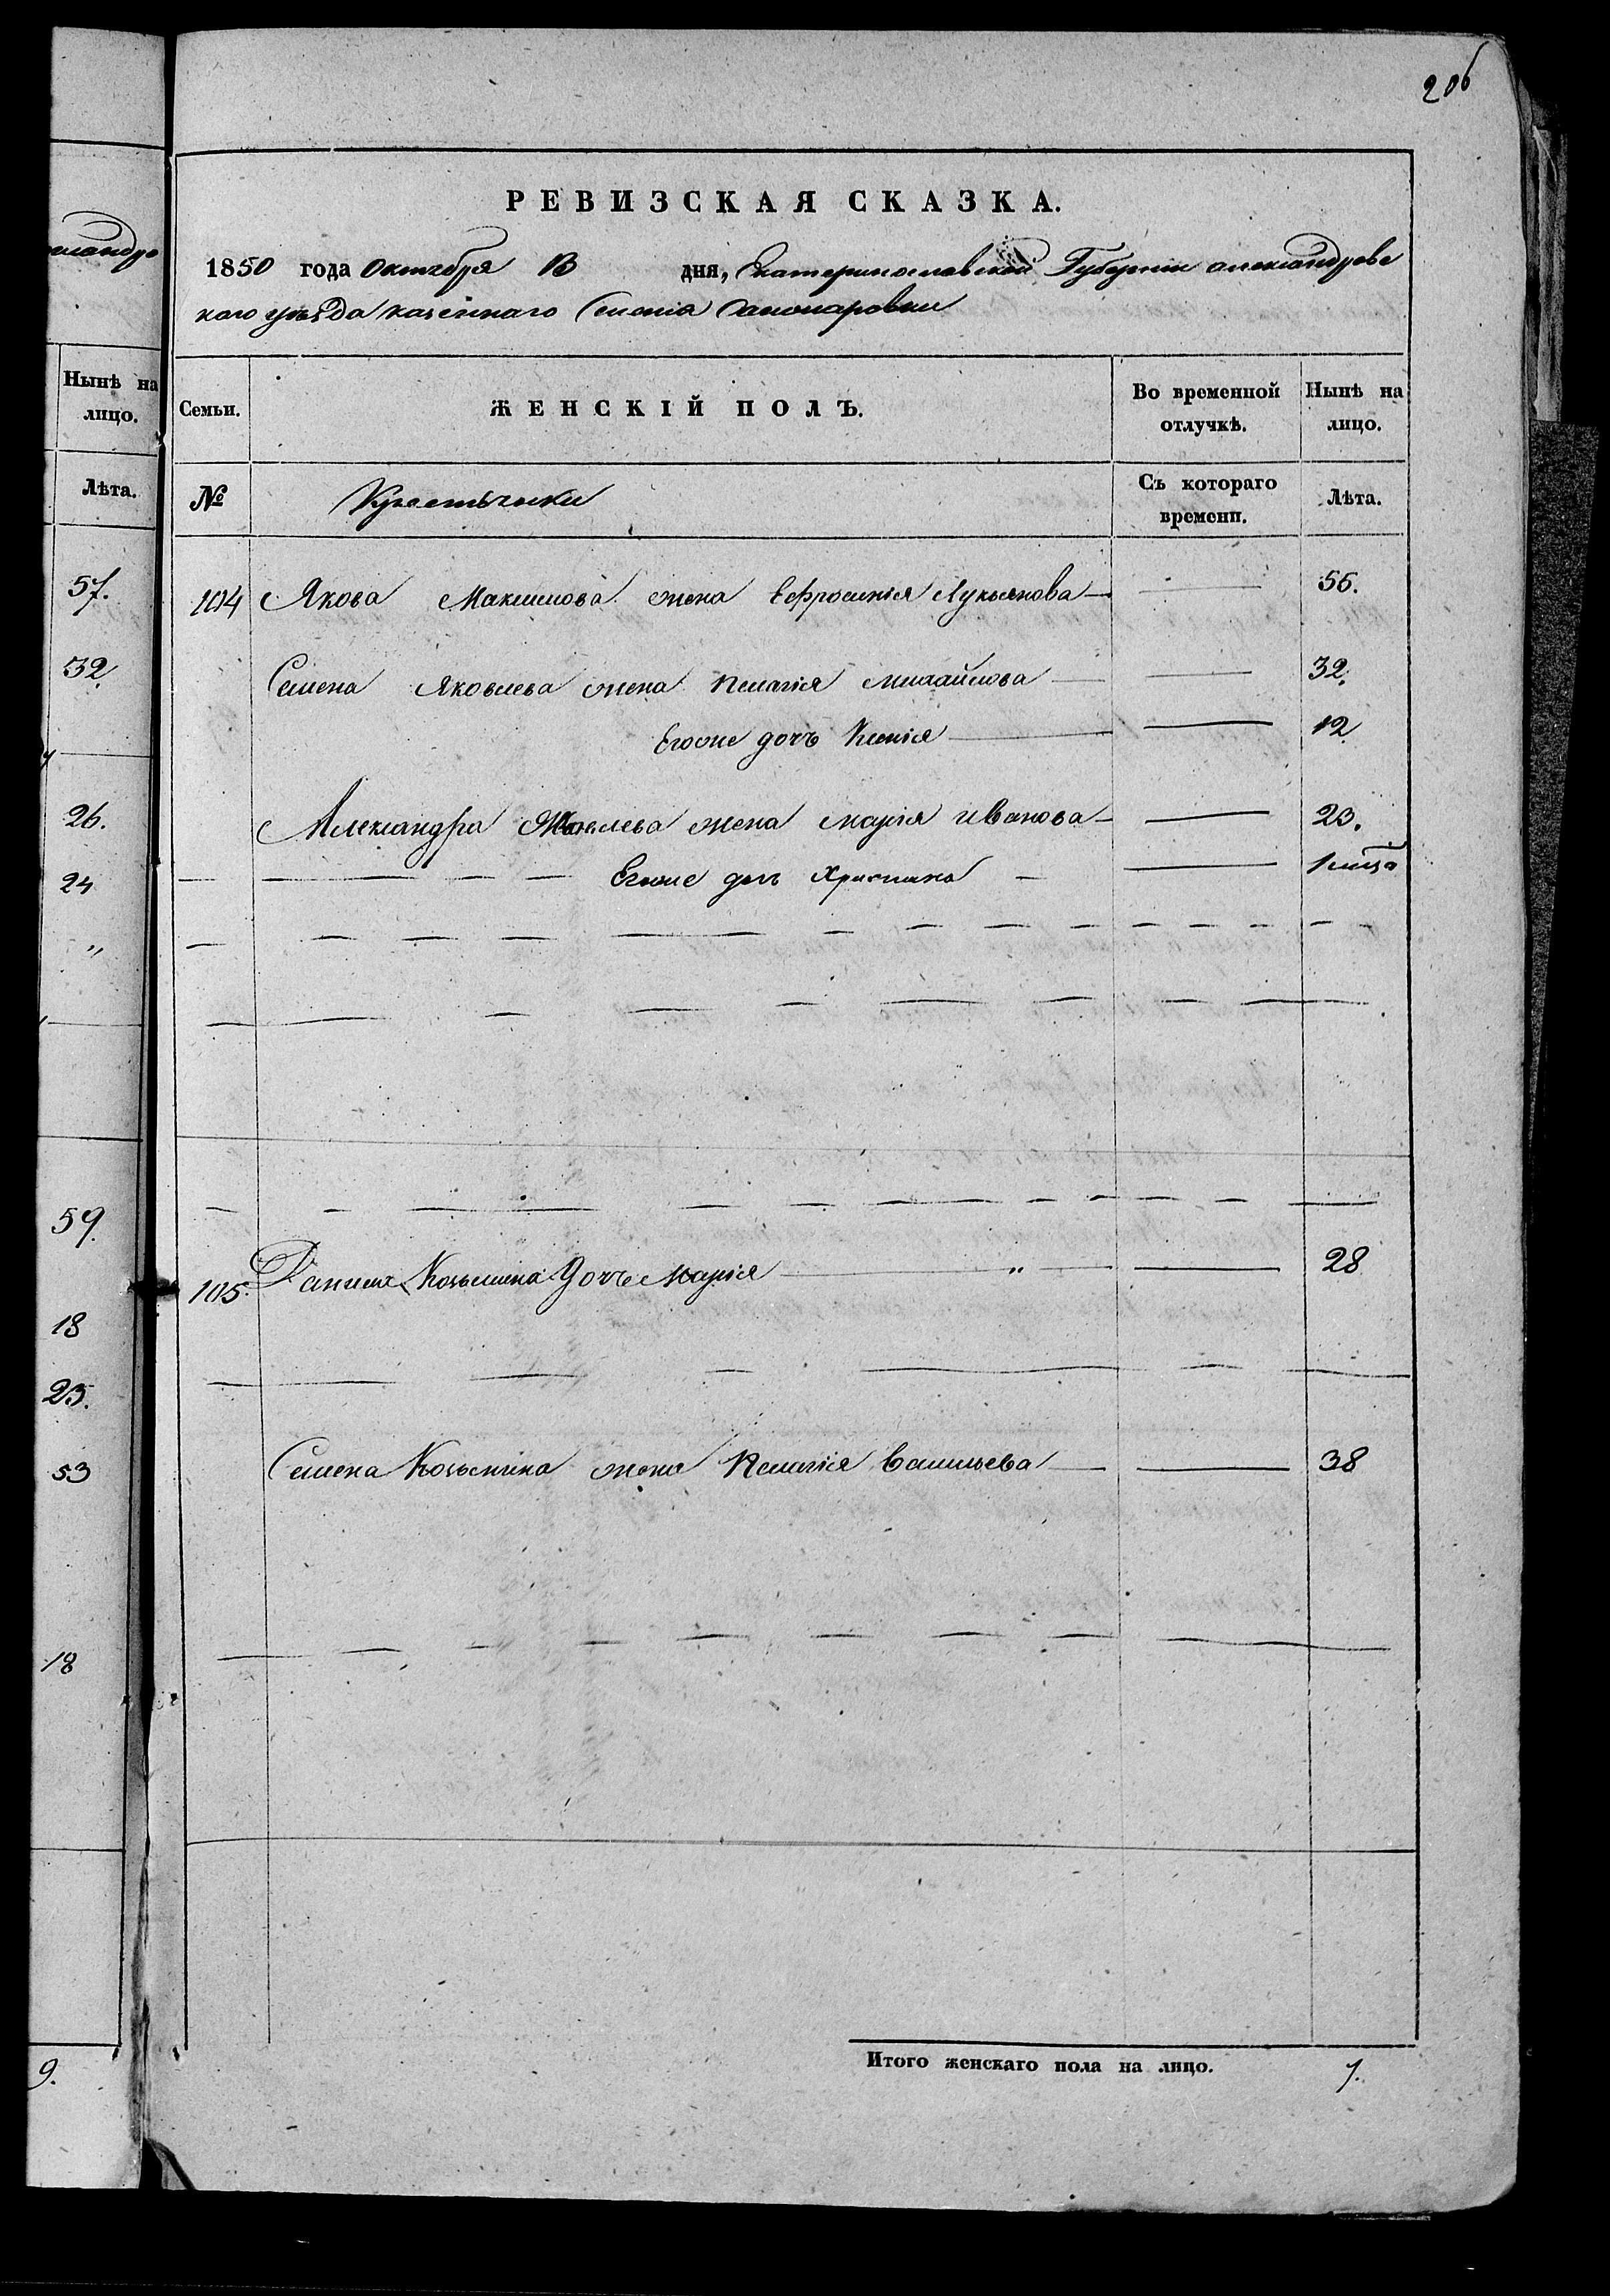 206
РЕВИЗСКАЯ СКАЗКА.
1850 года Октября 13 дня, Екатеринославской Губерніи Александровс
кого уѣзда казеннаго Селенія Санжаровки
Нынѣ на лицо.
Лѣта.
57.
32.
26.
24
"
59.
18
23.
53
18
9.
Семьи. ЖЕНСКІЙ ПОЛЪ. Во временной отлучкѣ. Нынѣ на лицо.
№ Крестьянки Съ котораго времени. Лѣта.
104 Якова Максимова жена Ефросинія Лукьянова 56.
Семена Яковлева жена Пелагія Михайлова 32.
Егоже дочь Ксенія 12
Александра Яковлева жена Марія Иванова 23.
Егоже дочь Христина
105. Данила Козьмина дочь Марія " 28
Семена Козьмина жена Пелагія Васильева 38
Итого женскаго пола на лицо. 7.